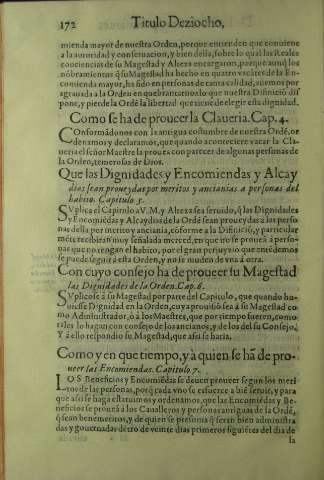 172 Titulo Deziocho,
mienda mayor de nuestra Orden, porque entienden que conuiene
a la autoridad y conseruacion, y bien della, sobre lo qual las Reales
conciencias de su Magestad y Alteza encargaron, porque aunq̃ los
nõbramientos q̃ su Magestad ha hecho en quatro vacãtes de la En-
comienda mayor, hã sido en personas de tanta calidad, suemos por
agrauada a la Orden en quebrantarnos lo que nuestra Difiniciõ dif
pone, y pierde la Ordẽ la libertad que tiene de elegir esta dignidad.
Como se ha de proueer la Claueria. Cap. 4.
COnformãdonos con la antigua costumbre de nuestra Ordẽ, or
denamos y declaramos, que quando aconteciere vacar la Cla-
ueria el señor Maestre la prouea con parecer de algunas personas de
la Orden, temerosas de Dios.
Que las Dignidades y Encomiendas y Alcay
dias sean proueydas por meritos y ancianias a personas del
habito. Capitulo 5.
SVplica el Capitulo a V. M. y Alteza sea seruido, q̃ las Dignidades
y Encomiẽdas y Alcaydias de la Ordẽ seã proueydas a las perso
nas della por merito y anciania, cõforme a la Difiniciõ, y particular
mẽte recibirãn muy señalada merced, en que no se prouea a perso-
nas que no tengan el habito, por el gran perjuyzio que entẽdemos
se puede seguir a esta Orden, y no se muden de vna a otra.
Con cuyo consejo ha de proueer su Magestad
las Dignidades de la Orden. Cap. 6.
SVplicose a su Magestad por parte del Capitulo, que quando hu-
uiesse Dignidad en la Orden, cuya prouisiõ sea a su Magestad co-
mo Administrador, ò a los Maestres, que por tiempo fueren, como
tales lo hagan con consejo de los ancianos, y de los del su Consejo.
Y a ello respondio su Magestad, que assi se haria.
Como y en que tiempo, y à quien se hã de pro-
ueer las Encomiendas. Capitulo 7.
LOS Beneficios y Encomiẽdas se deuen proueer segun los meri-
tos de las personas, porq̃ cada vno se esfuerce a biẽ seruir, y para
que assi se haga estatuimos y ordenamos, que las Encomiẽdas y Be-
neficios se prouea a los Caualleros y personas antiguas de la Ordẽ,
q̃ sean benemeritos, y de quien se presuma q̃ seran bien administra
das y gouernadas dẽtro de veinte dias primeros siguiẽtes del dia de
la